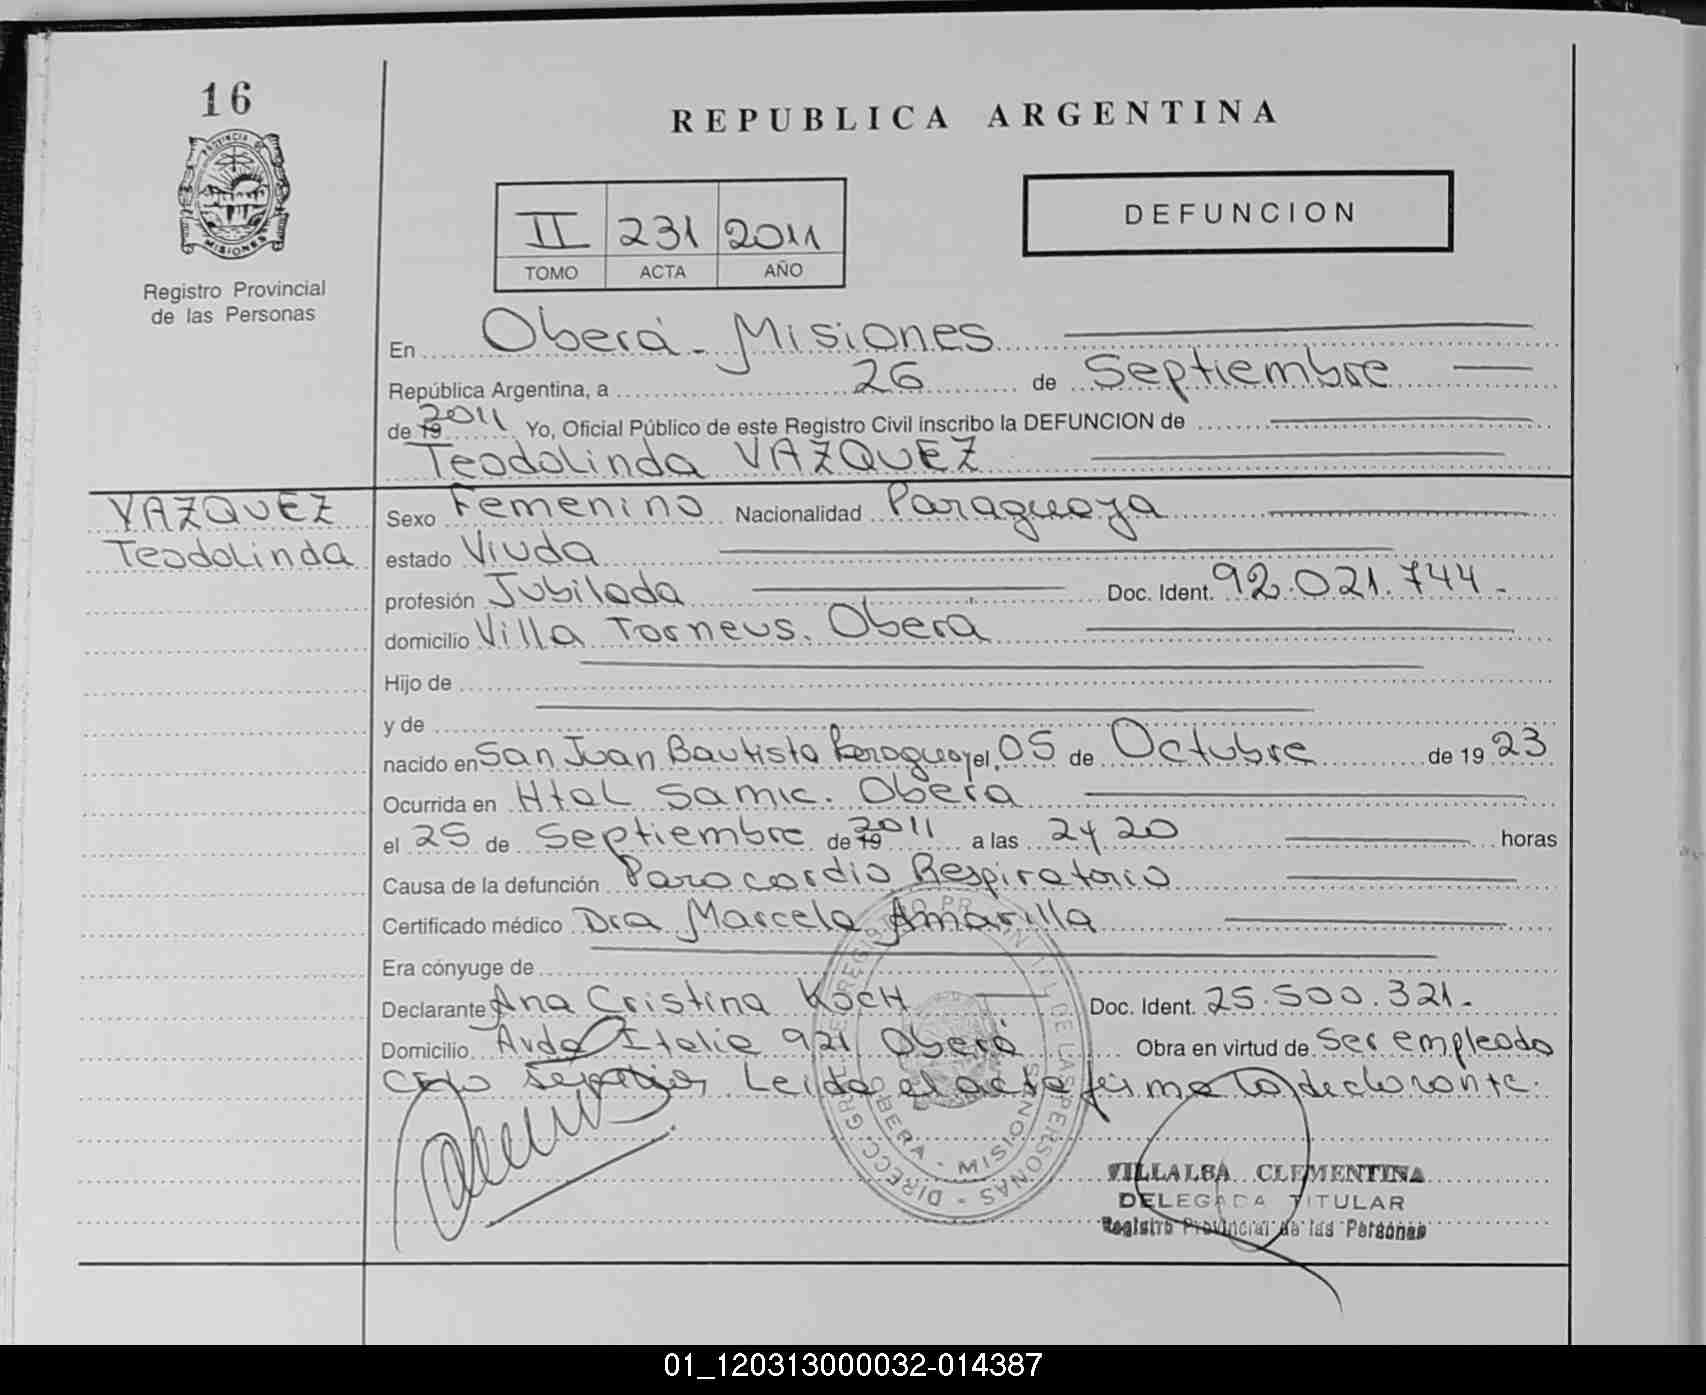 16
REPUBLICA ARGENTINA
PROVINCIA DE
MISIONES
Registro Provincial
de las Personas
II 231 2011
TOMO ACTA AÑO
DEFUNCION
En Oberá - Misiones
República Argentina, a 26 de Septiembre
de 19 2011 Yo, Oficial Público de este Registro Civil inscribo la DEFUNCION de
Teodolinda VAZQUEZ
VAZQUEZ
Teodolinda
Sexo Femenino Nacionalidad Paraguaya
estado Viuda
profesión Jubilada Doc. Ident. 92.021.744.-
domicilio Villa Torneus. Oberá
Hijo de
y de
nacido en San Juan Bautista Paraguay el 05 de Octubre de 1923
Ocurrida en Htal Samic. Oberá
el 25 de Septiembre de 19 2011 a las 2120 horas
Causa de la defunción Paro cardio Respiratorio
Certificado médico Dra Marcela Amarilla
Era cónyuge de
Declarante Ana Cristina KOCH Doc. Ident. 25.500.321.-
Domicilio Avda Italia 921 Oberá Obra en virtud de Ser empleada
Leida el acta firma la declarante.
OBERA - MISIONES
VILLALBA CLEMENTINA
DELEGADA TITULAR
Registro Provincial de las Personas
01_120313000032-014387